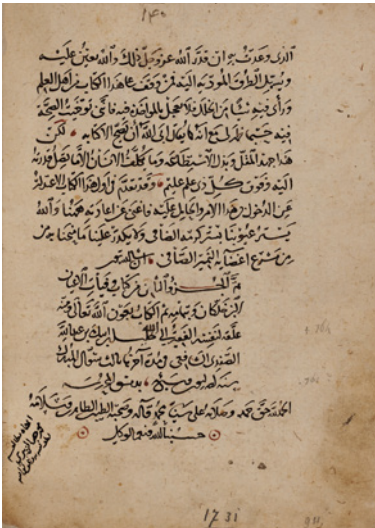 ١٤٥
الذى وعدت به ان قدر الله عز وجل ذلك والله يعين عليه
ويسهل الطرق المؤدية اليه فمن وقف على هذا الكتاب من اهل العلم
ورأى فيه شيئا من الخلل فلا يعجل بالمؤاخذة فيه فانى توخيت الصحة
فيه حسبما ظهر لى مع انه كما يقال ابى الله ان يصح الا كتابه لكن
هذا جهد المقل وبذل الاستطاعة وما يكلف الانسان الا ما تصل قدرته
اليه وفوق كل ذى علم عليم وقد تقدم فى اول هذا الكتاب الاعتذار
عن الدخول فى هذا الامر والحامل عليه فاغنى عن اعادته ههنا والله
يستر عيوبنا بستر كرمه الضافى ولا يكدر علينا ما منحنا به
من مشرع اغضائه النمير الصافى
الجزء الثانى من كتاب وفيات الاعيان
وبتمامه تم الكتاب بعون الله تعالى ومنه
علقه لنفسه الفقير الى الله خليل بن ايبك بن عبد الله
الصفدى الشافعى فى مدة اخرها ثالث شوال المبارك
بدمشق المحروسة
الحمد لله حق حمده وصلاته على سيدنا محمد واله وصحبه الطيبين الطاهرين وسلامه
حسبنا الله ونعم الوكيل
1731